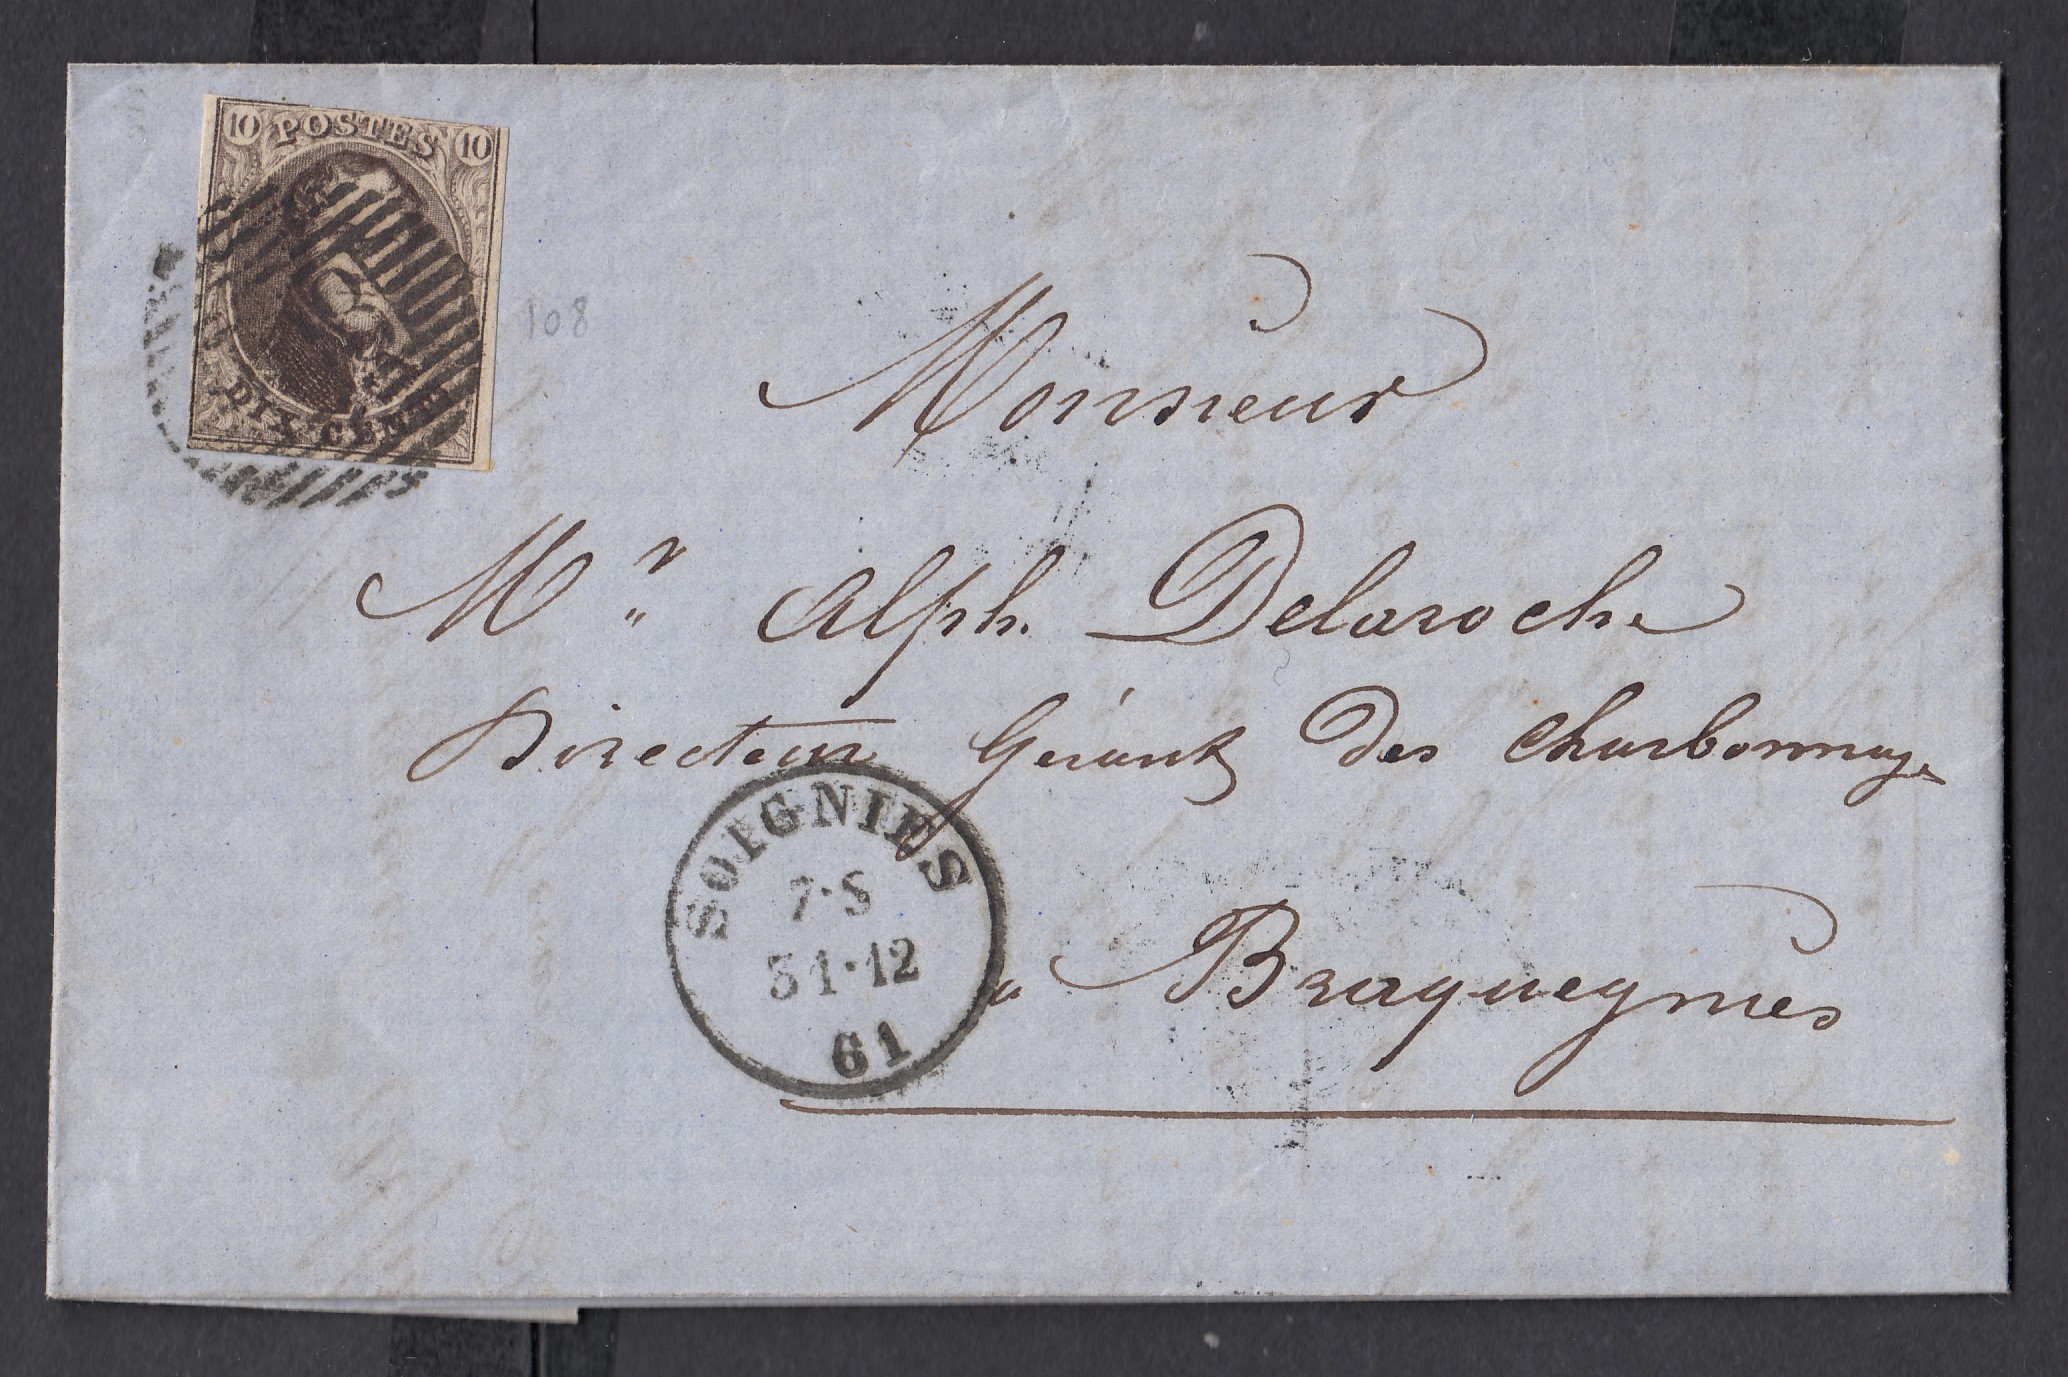 10 POSTES 10
DIX CENTS
108
Monsieur
Mr Alph. Delaroche
Directeur Gérant des Charbonnages
SOIGNIES
7·S
31·12
61
a Braquegnies